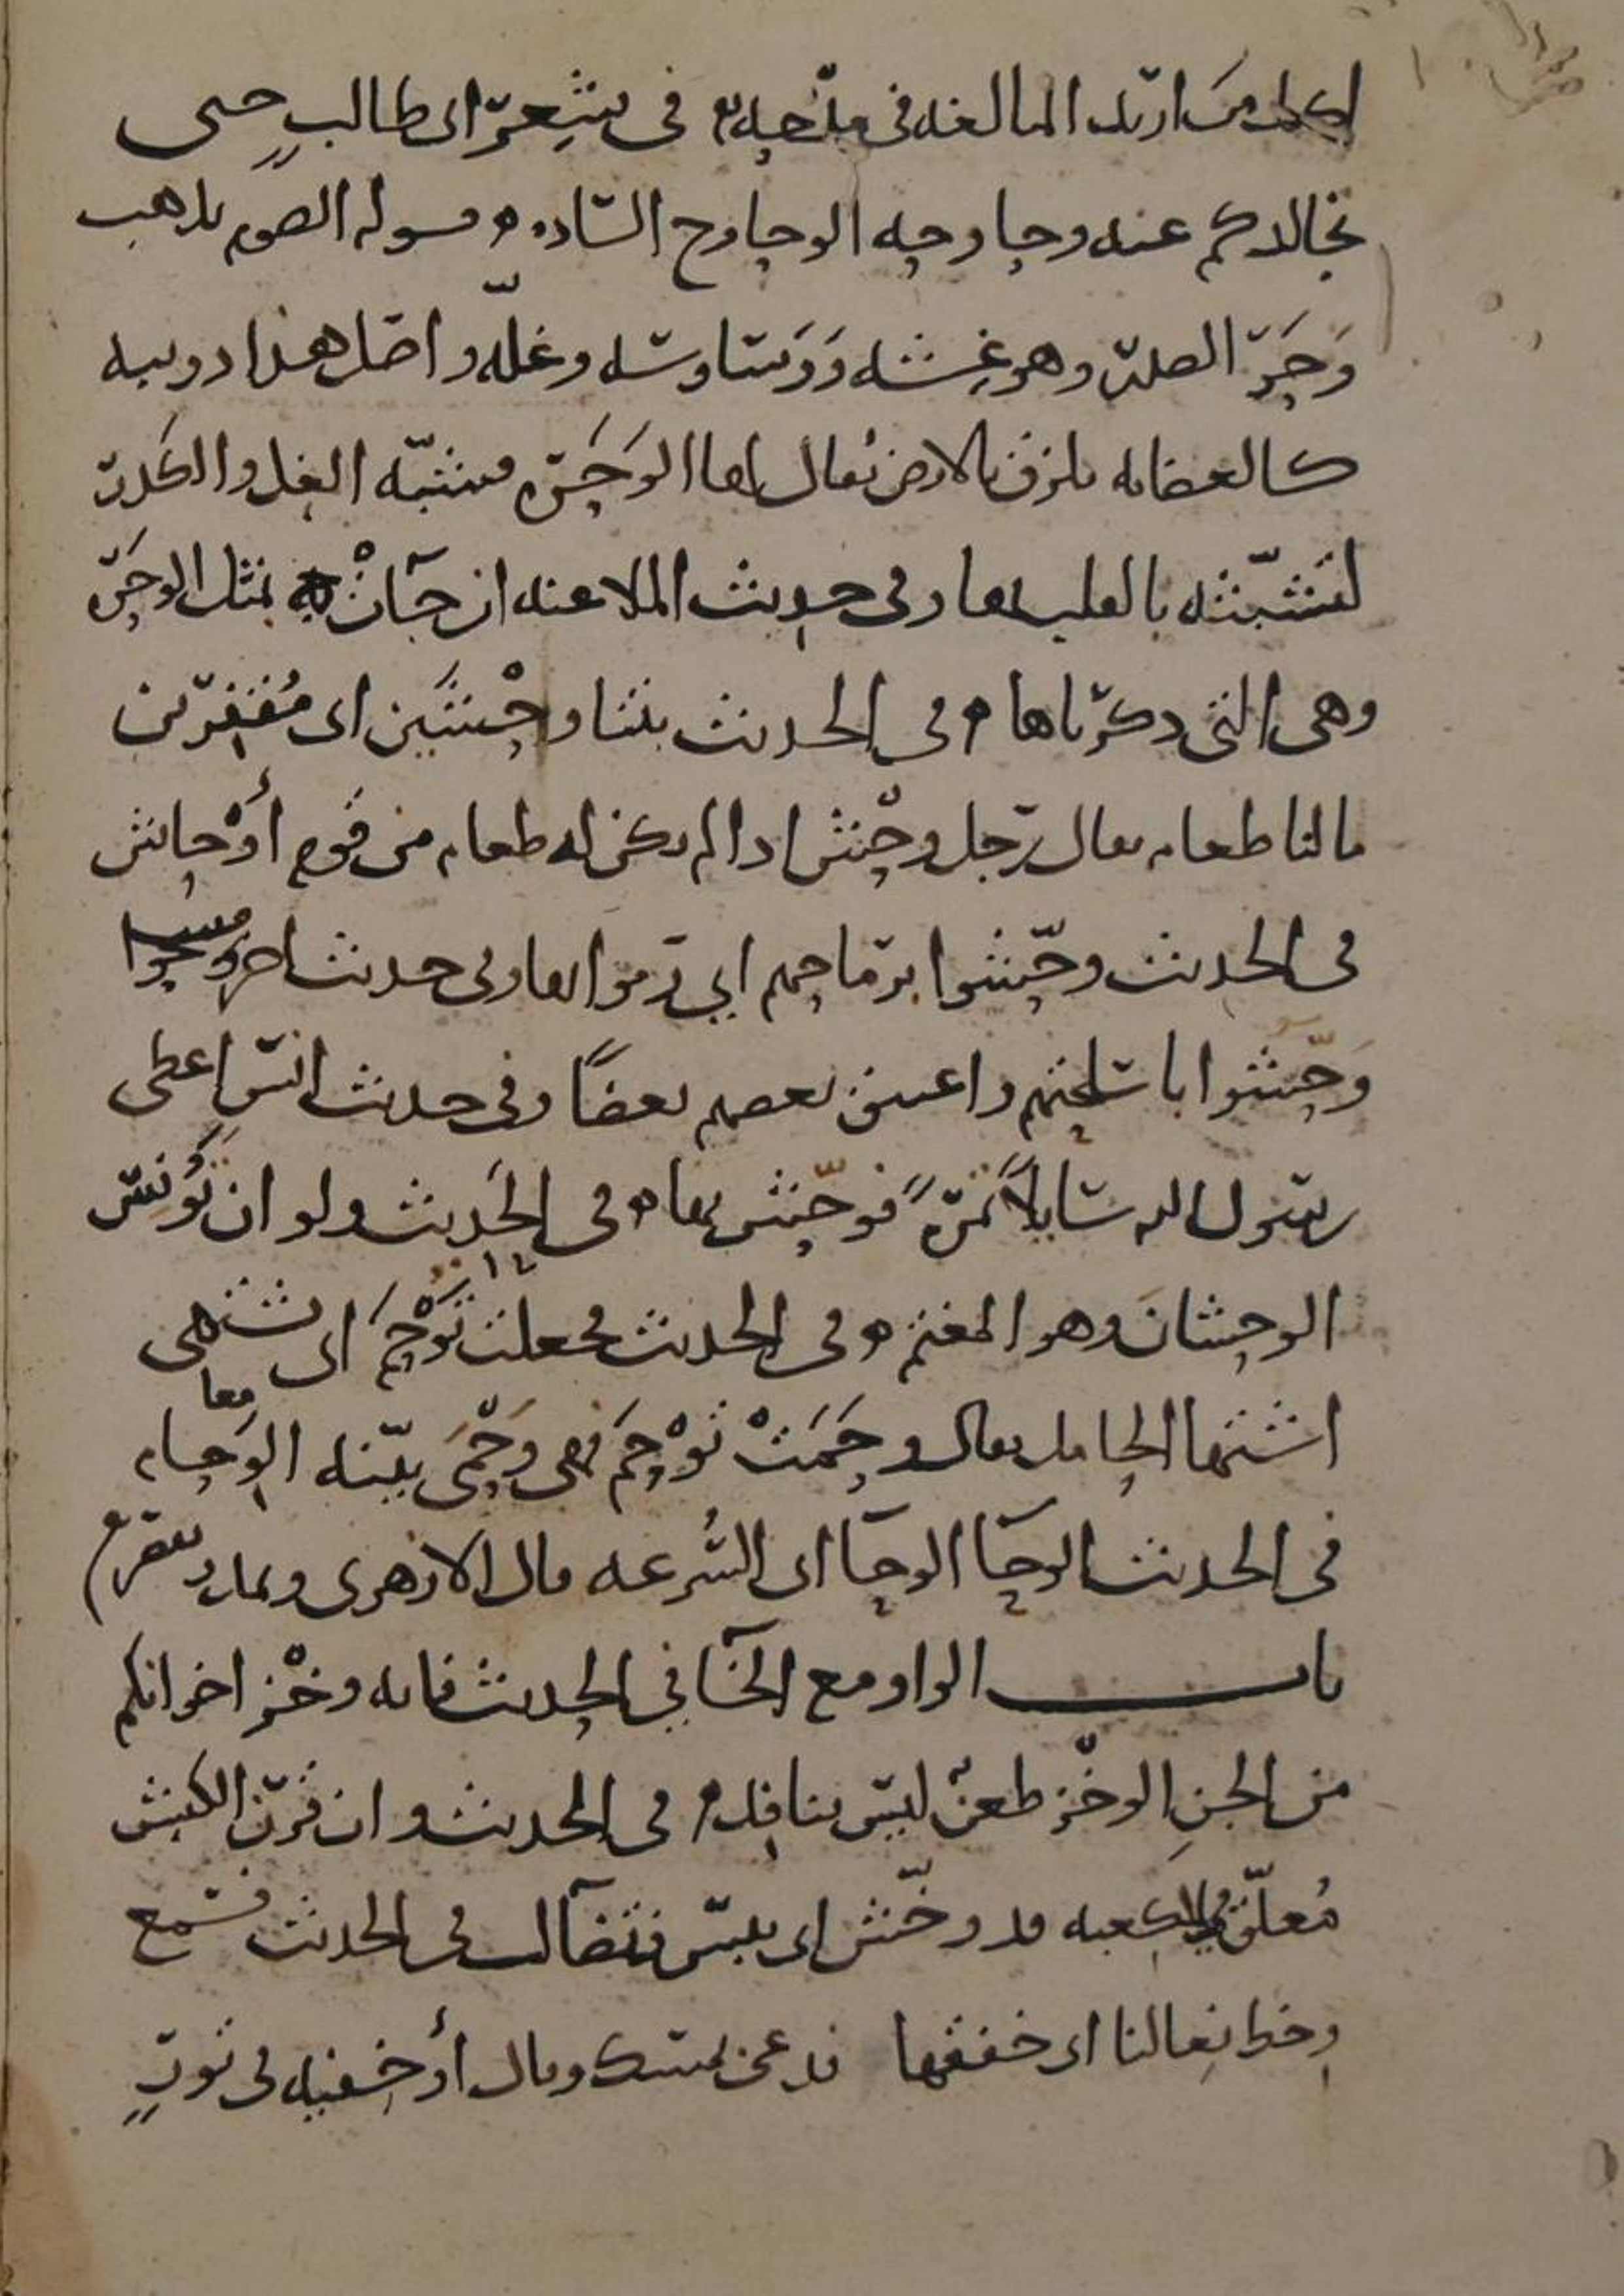 لكل من اريد المبالغة في مدحه في شعر ابي طالب حتى
نجالدكم عنه وحاوحه الوحاوح السادة قوله الصوم يذهب
وَحَرَ الصدر وهو غِشه ووساوسه وغلّه واصل هذا دويبة
كالعضاية تلزق بالارض يُقال لها الوَحَرة فشبّه الغل والكدر
لتشبّثه بالقلب بها وفي حديث الملاعنة ان جآتْ به مثل الوحرة
وهي التي ذكرناها في الحديث بتنا وحْشَين اي مُقفرين
مالنا طعام يقال رجل وحْش اذا لم يكن له طعام من قوم أوْحاش
في الحديث وحّشوا برماحهم اي رموا بها وفي حديث اخر
وَحّشوا باسلحتهم واعتنق بعضهم بعضًا وفي حديث انس اعطى
رسول الله سايلًا تمرة فوحّش بها في الحديث ولو ان تُؤنِس
الوحشان وهو المغتم في الحديث فجعلت تَوْحَم اي تشتهي
اشتها الحامل يقال وحَمَتْ توْحَم فهي وَحْمَى بيّنة الوحام معا
في الحديث الوحا الوحا اي السُرعة قال الازهري ويمد ويقصر
باب الواو مع الخآ في الحديث فانه وخْز اخوانكم
من الجنِ الوخْز طعنٌ ليس بنافذ في الحديث وان قرن الكبش
مُعلّق في الكعبة قد وخّش اي يبس فتضآل في الحديث فسمع
وخط نعالنا اي خفقها فدعى بمسك وقال أوخفيه في تورٍ